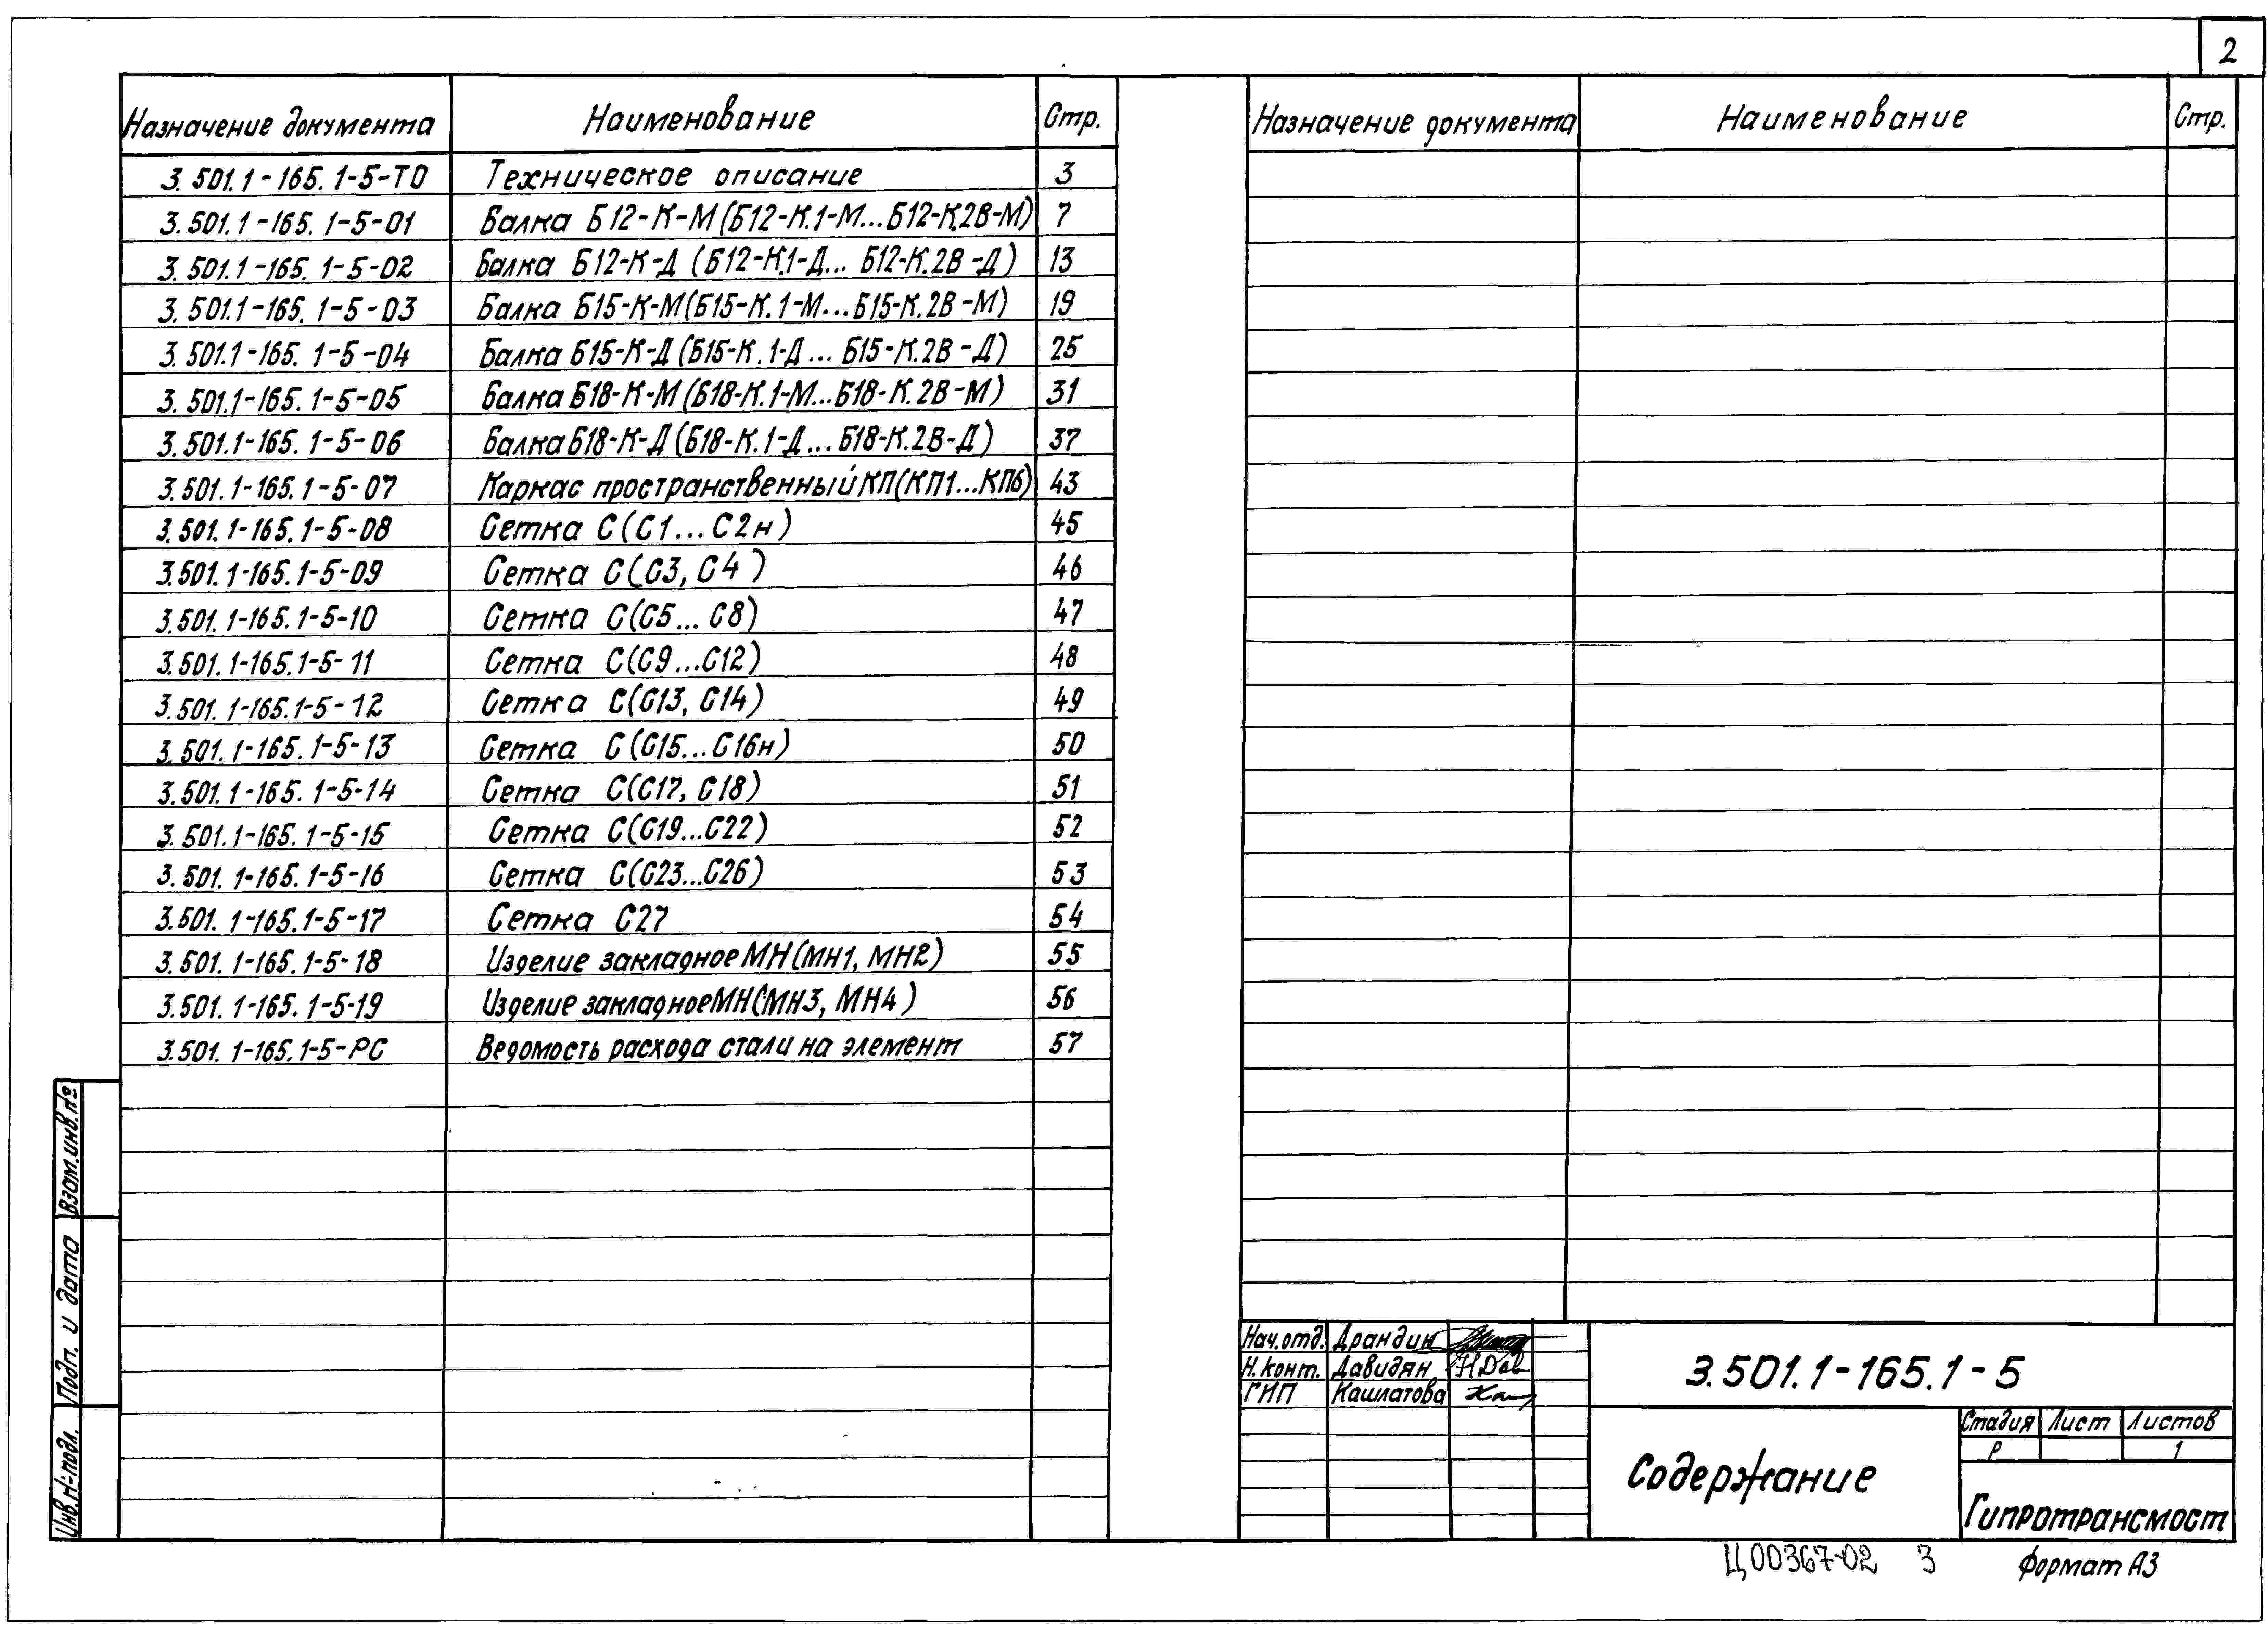 2
Назначение документа Наименование Стр.
3.501.1-165.1-5-ТО Техническое описание 3
3.501.1-165.1-5-01 Балка Б12-К-М(Б12-К.1-М...Б12-К.2В-М) 7
3.501.1-165.1-5-02 Балка Б12-К-Д (Б12-К.1-Д... Б12-К.2В-Д) 13
3.501.1-165.1-5-03 Балка Б15-К-М(Б15-К.1-М...Б15-К.2В-М) 19
3.501.1-165.1-5-04 Балка Б15-К-Д(Б15-К.1-Д... Б15-К.2В-Д) 25
3.501.1-165.1-5-05 Балка Б18-К-М(Б18-К.1-М...Б18-К.2В-М) 31
3.501.1-165.1-5-06 Балка Б18-К-Д(Б18-К.1-Д...Б18-К.2В-Д) 37
3.501.1-165.1-5-07 Каркас пространственный КП(КП1...КП6) 43
3.501.1-165.1-5-08 Сетка С(С1...С2н) 45
3.501.1-165.1-5-09 Сетка С(С3, С4) 46
3.501.1-165.1-5-10 Сетка С(С5...С8) 47
3.501.1-165.1-5-11 Сетка С(С9...С12) 48
3.501.1-165.1-5-12 Сетка С(С13, С14) 49
3.501.1-165.1-5-13 Сетка С(С15...С16н) 50
3.501.1-165.1-5-14 Сетка С(С17, С18) 51
3.501.1-165.1-5-15 Сетка С(С19...С22) 52
3.501.1-165.1-5-16 Сетка С(С23...С26) 53
3.501.1-165.1-5-17 Сетка С27 54
3.501.1-165.1-5-18 Изделие закладное МН(МН1, МН2) 55
3.501.1-165.1-5-19 Изделие закладное МН(МН3, МН4) 56
3.501.1-165.1-5-РС Ведомость расхода стали на элемент 57
Взам.инв.№
Подп. и дата
Инв.№подл.
Назначение документа Наименование Стр.
Нач.отд. Драндин
Н.конт. Давидян НДав
ГИП Кашлатова Каш
3.501.1-165.1-5
Содержание
Стадия Лист Листов
Р 1
Гипротрансмост
Ц00367-02 3 Формат А3